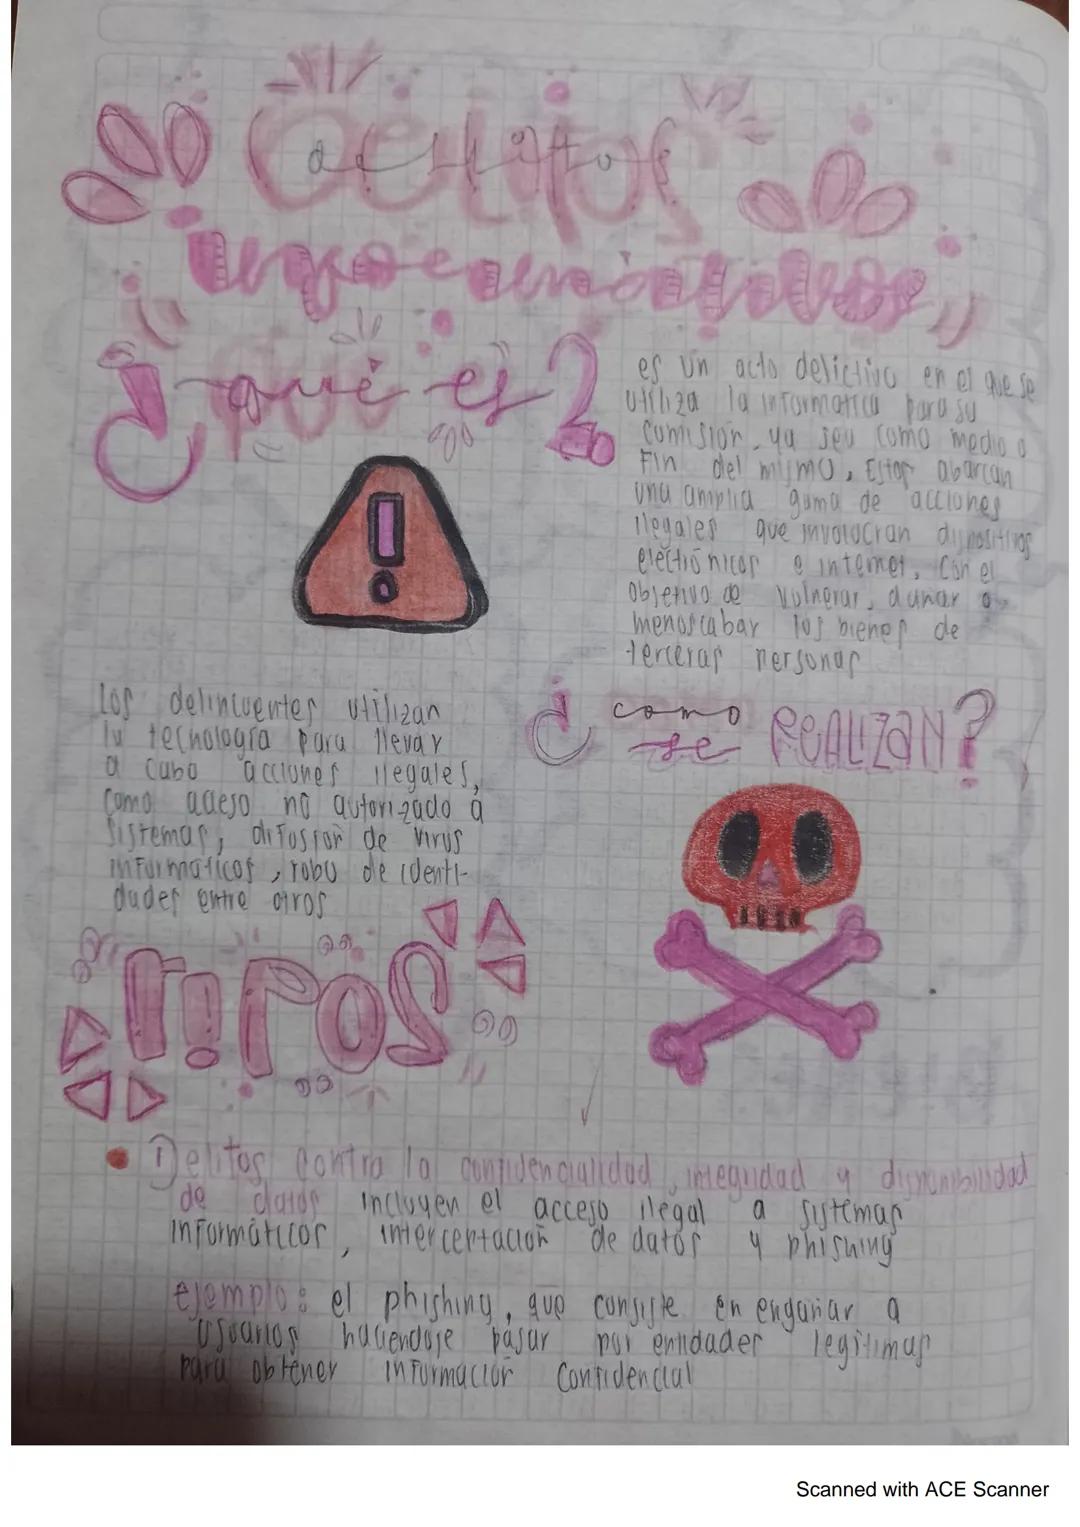 delitos
informáticos
¿qué es?
es un acto delictivo en el que se
utiliza la informatica para su
comisión, ya sea como medio o
Fin del mismo, Estos abarcan
una amplia gama de acciones
ilegales que involocran dispositivos
electrónicos e internet, con el
objetivo de vulnerar, dañar o
menoscabar los bienes de
terceras personas
¿como se REALIZAN?
los delincuentes utilizan
la tecnología para llevar
a cabo acciones ilegales,
como acceso no autorizado a
sistemas, difosion de virus
informáticos, robo de identi-
dades entre otros
TIPOS
Delitos contra la confidencialidad, integridad y disponibilidad
de datos incluyen el acceso ilegal a sistemas
informáticos, interceptación de datos y phishing
ejemplo: el phishing, que consiste en engañar a
usuarios haciendose pasar por entidades legítimas
para obtener información confidencial
Scanned with ACE Scanner